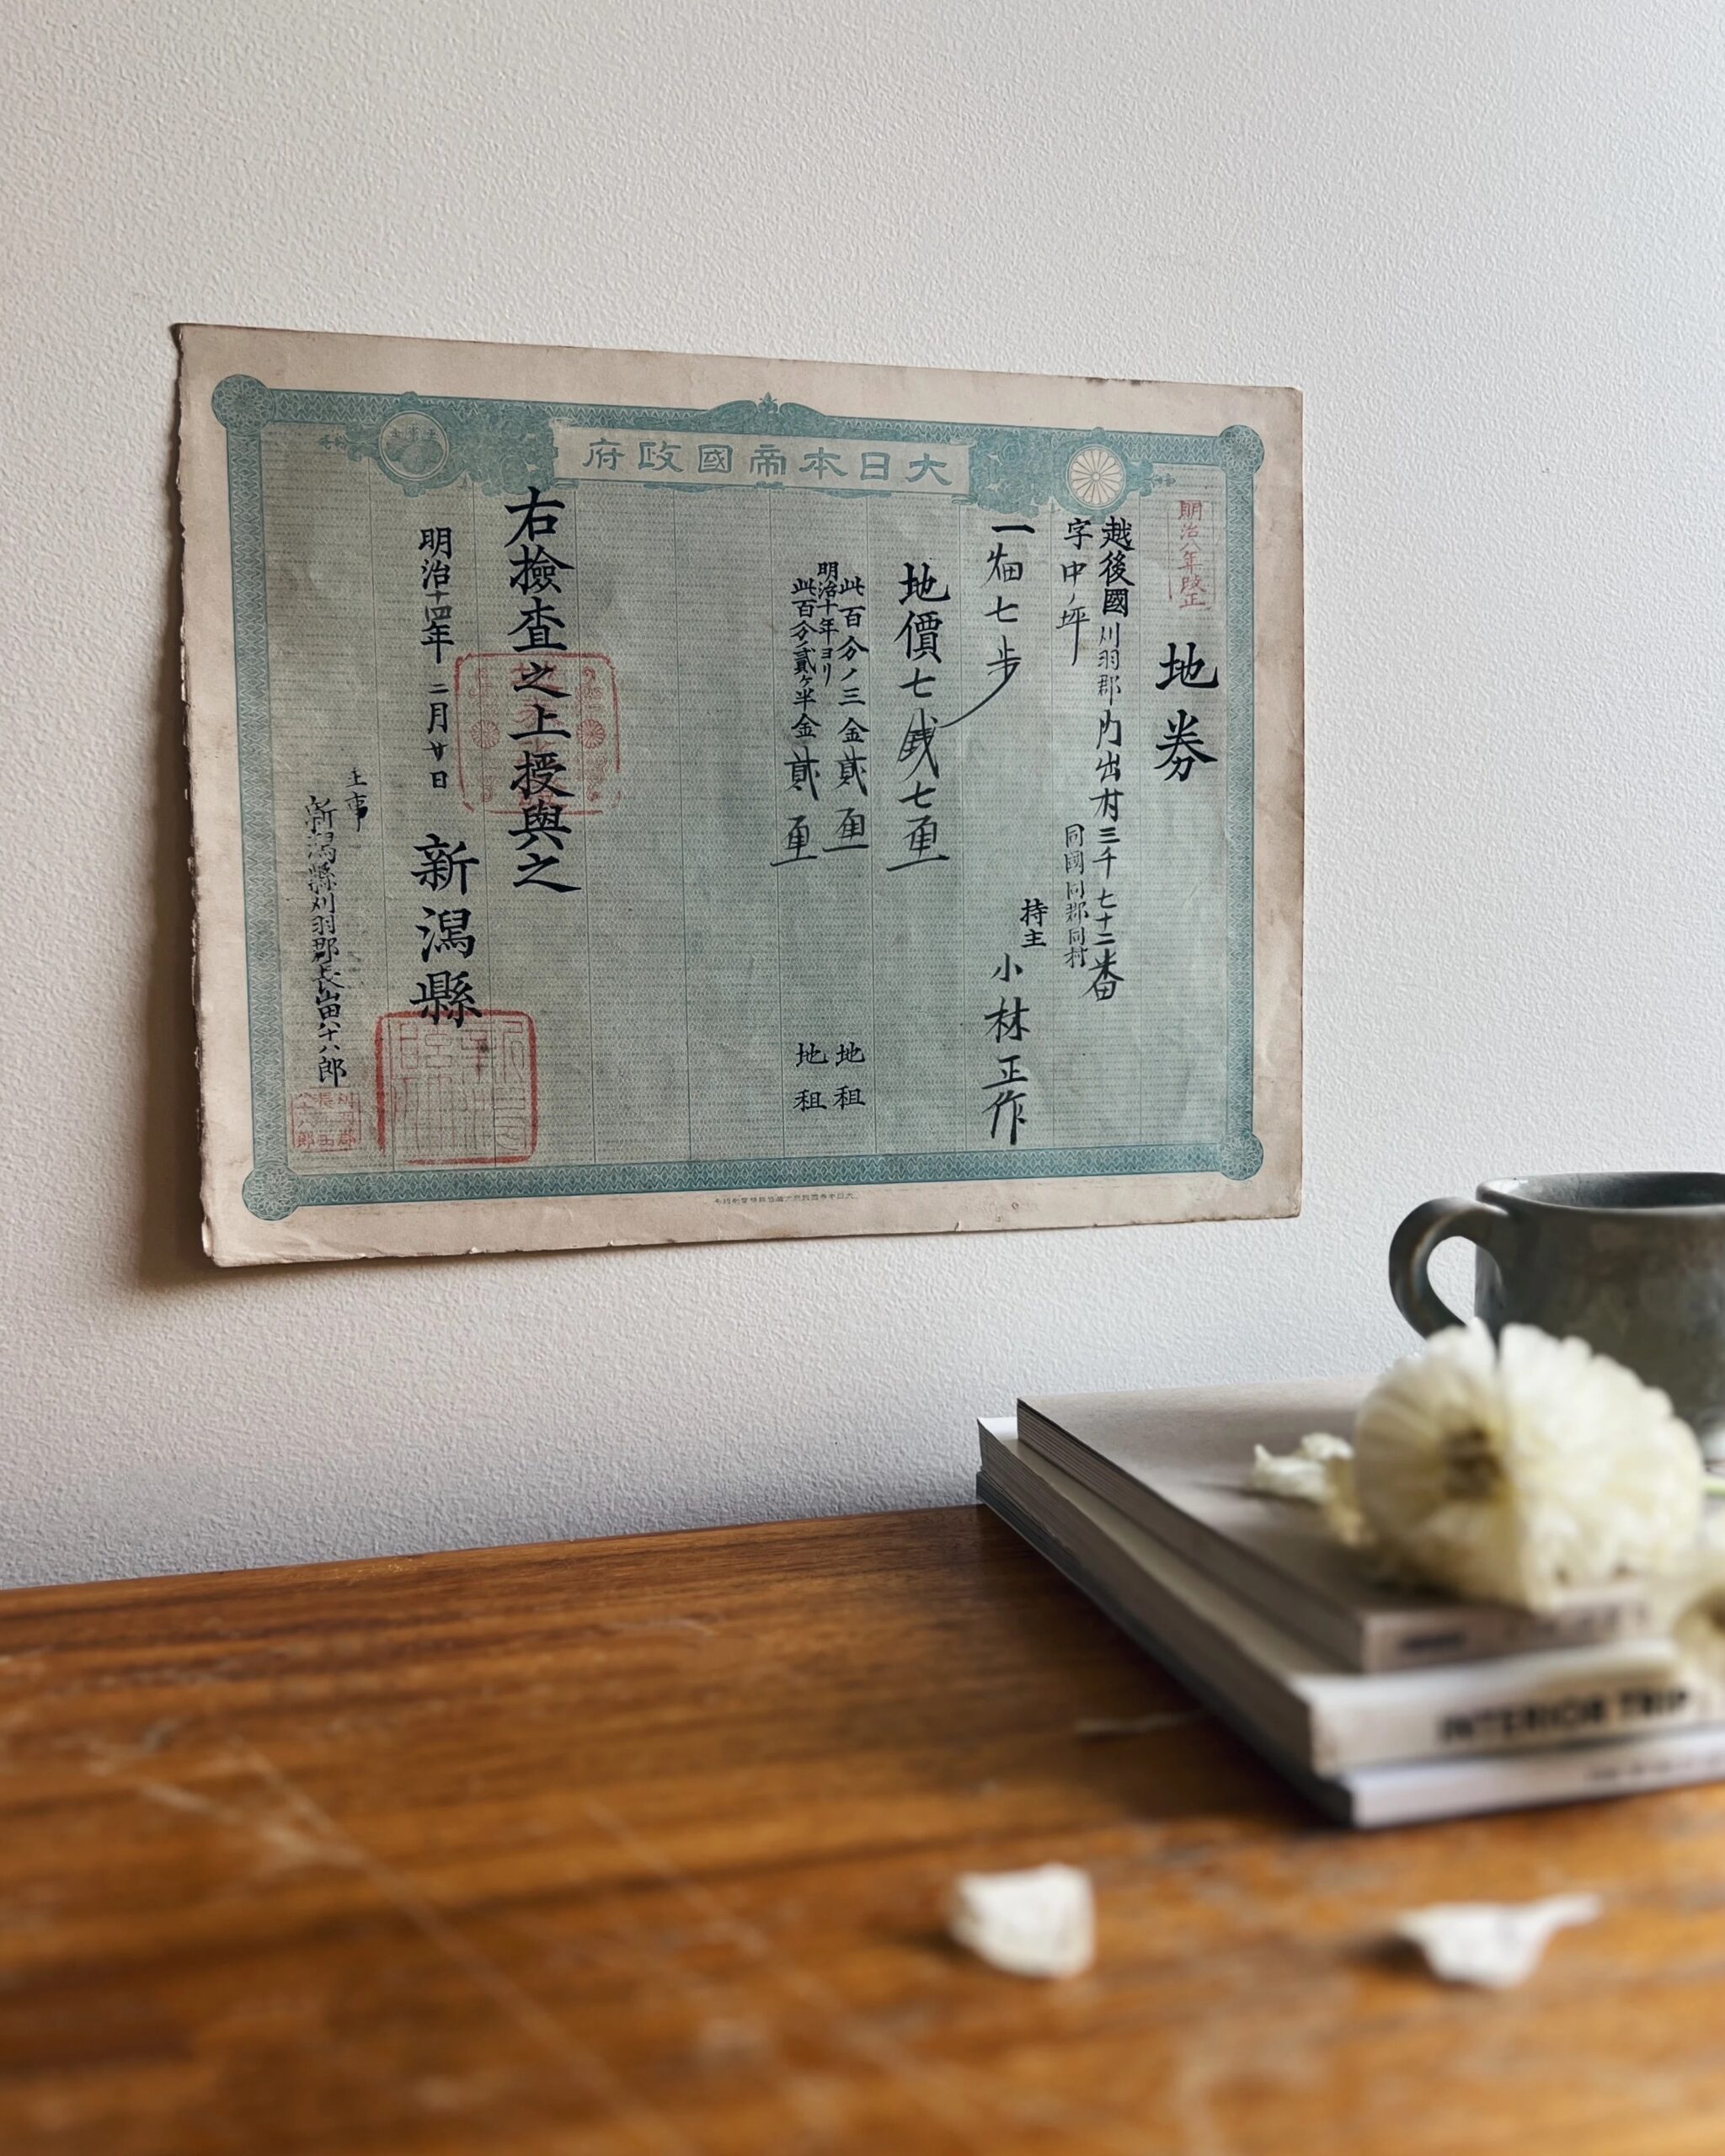 大日本帝國政府
明治八年改正
地券
越後國刈羽郡内出村三千七十二番
字中ノ坪
同國同郡同村
一畑七歩
持主 小林正作
地價七銭七厘
此百分ノ三金貳厘 地租
明治十年ヨリ
此百分ノ貳ヶ半金貳厘 地租
右撿査之上授與之
明治十四年二月廿日 新潟縣
主事
INTERIOR TRIP